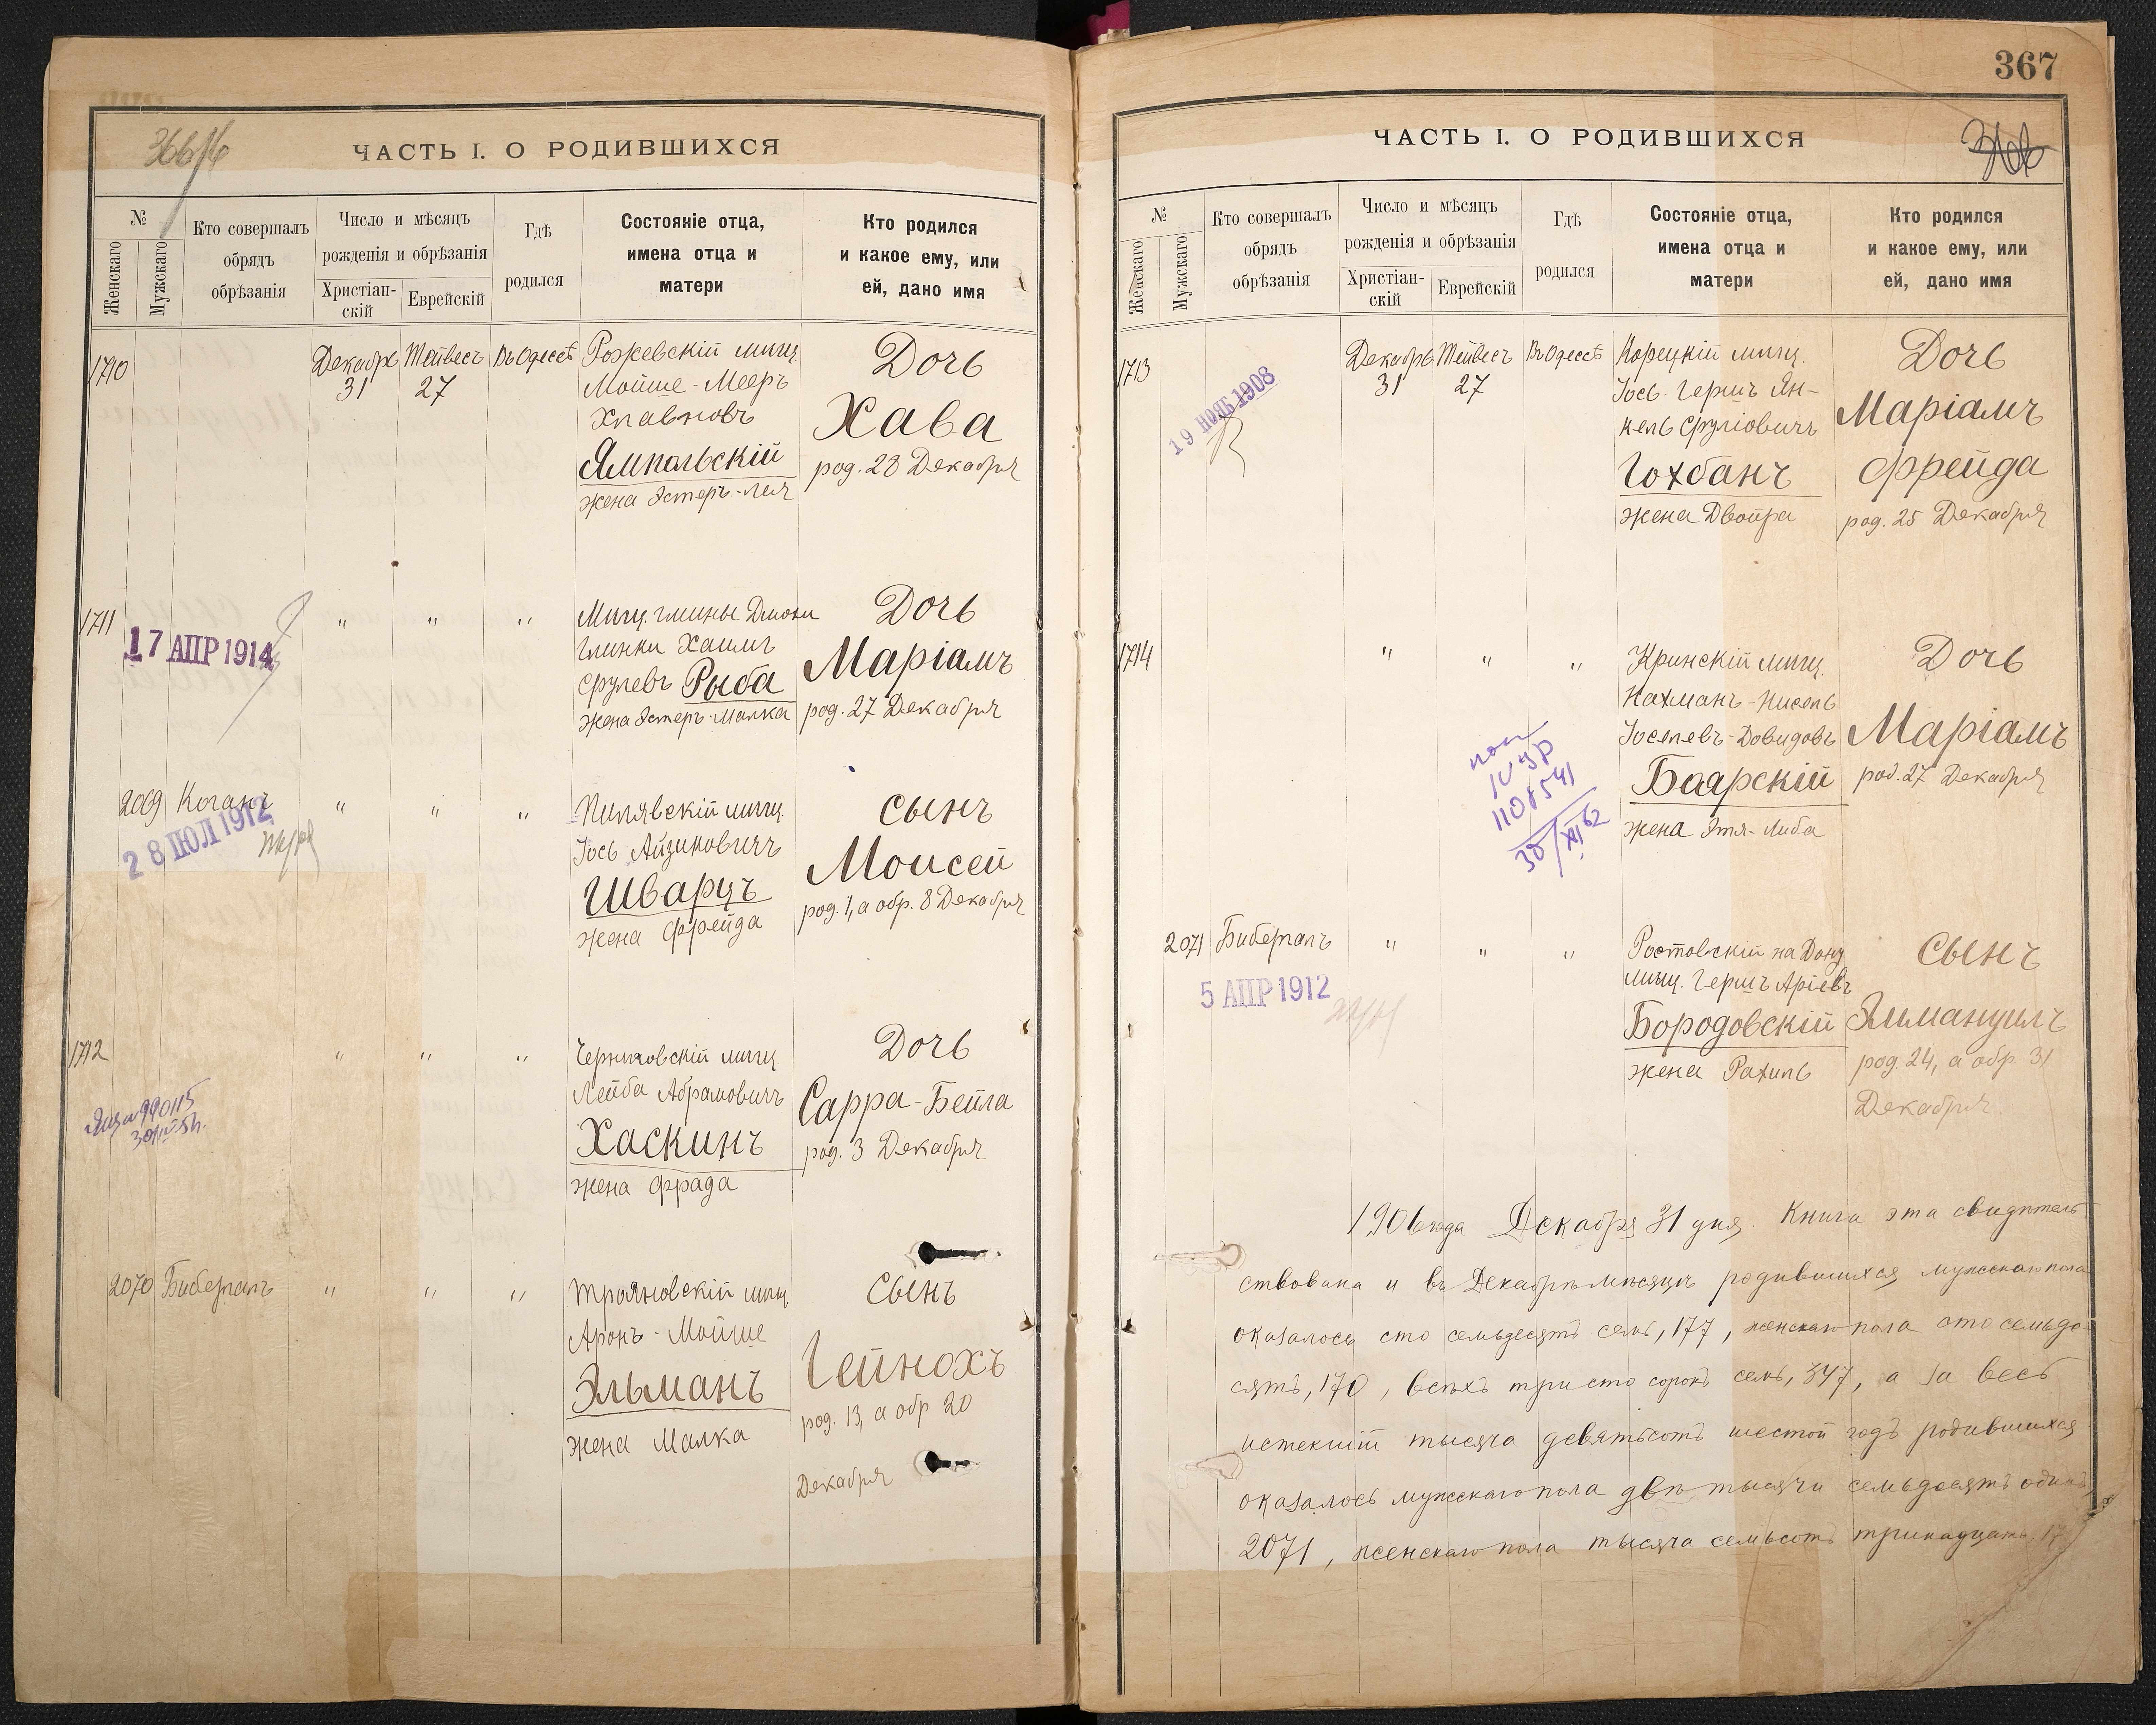 366/
ЧАСТЬ I. О РОДИВШИХСЯ
№
Женскаго
Мужскаго
Кто совершалъ
обрядъ
обрѣзанія
Число и мѣсяцъ
рожденія и обрѣзанія
Христіан-
скій
Еврейскій
Гдѣ
родился
Состояніе отца,
имена отца и
матери
Кто родился
и какое ему, или
ей, дано имя
1710
Декабрь
31
Тейвесъ
27
Въ Одессѣ
Рожевскій мѣщ.
Мойше-Мееръ
Хлавновъ
Ямпольскій
жена Эстеръ-Лея
Дочь
Хава
род. 28 Декабря
1711
17 АПР 1914
" " "
Мѣщ. гмины
Глинки Хаимъ
Срулевъ Рыба
жена Эстеръ-Малка
Дочь
Маріамъ
род. 27 Декабря
2069 Коганъ
28 ІЮЛ 1912
" " "
Пилявскій мѣщ.
Іось Айзиковичъ
Шварцъ
жена Фрейда
Сынъ
Моисей
род. 1, а обр. 8 Декабря
1712
990115
" " "
Черняховскій мѣщ.
Лейба Абрамовичъ
Хаскинъ
жена Фрада
Дочь
Сарра-Бейла
род. 3 Декабря
2070 Биберталъ
" " "
Трояновскій мѣщ.
Аронъ-Мойше
Эльманъ
жена Малка
Сынъ
Гейнохъ
род. 13, а обр 20
Декабря
367
ЧАСТЬ I. О РОДИВШИХСЯ
№
Женскаго
Мужскаго
Кто совершалъ
обрядъ
обрѣзанія
Число и мѣсяцъ
рожденія и обрѣзанія
Христіан-
скій
Еврейскій
Гдѣ
родился
Состояніе отца,
имена отца и
матери
Кто родился
и какое ему, или
ей, дано имя
1713
19 НОЯБ 1908
Декабрь
31
Тейвесъ
27
Въ Одессѣ
Корецкій мѣщ.
Іось-Гершъ Ян-
кель Сруліовичъ
Гохбанъ
жена Двойра
Дочь
Маріамъ
Фрейда
род. 25 Декабря
1714
" " "
110541
30/XI 62
Кринскій мѣщ.
Нахманъ-Нисель
Іоселевъ-Довидовъ
Боярскій
жена Этя-Либа
Дочь
Маріамъ
род. 27 Декабря
2071 Биберталъ
5 АПР 1912
" " "
Ростовскій на Дону
мѣщ. Гершъ Аріевъ
Бородовскій
жена Рахиль
Сынъ
Эммануилъ
род. 24, а обр. 31
Декабря
1906 года Декабря 31 дня. Книга эта свидѣтель
ствована и въ Декабрѣ мѣсяцѣ родившихся мужскаго пола
оказалось сто семьдесятъ семь, 177, женскаго пола сто семьде-
сятъ, 170, всѣхъ триста сорокъ семь, 347, а за весь
истекшій тысяча девятьсотъ шестой годъ родившихся
оказалось мужскаго пола двѣ тысячи семьдесятъ одинъ,
2071, женскаго пола тысяча семьсотъ тринадцать